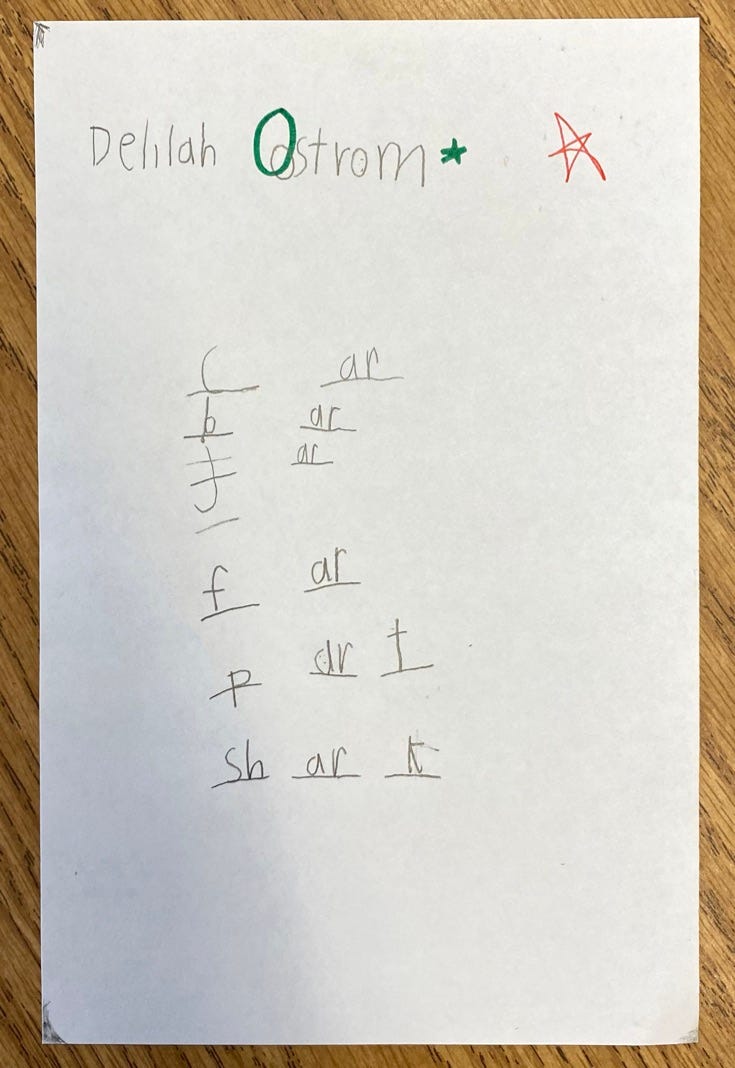 Delilah Ostrom
c ar
b ar
j ar
f ar
p ar t
sh ar k